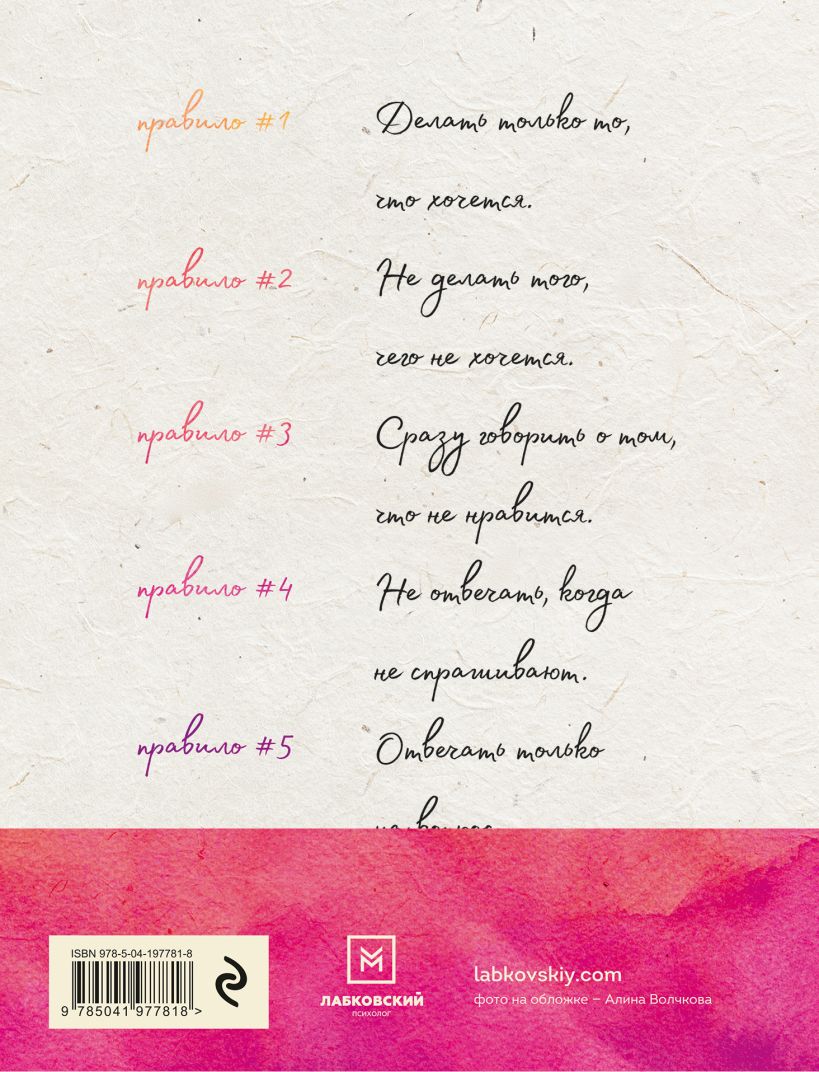 правило #1 Делать только то,
что хочется.
правило #2 Не делать того,
чего не хочется.
правило #3 Сразу говорить о том,
что не нравится.
правило #4 Не отвечать, когда
не спрашивают.
правило #5 Отвечать только
ISBN 978-5-04-197781-8
9 785041 977818 >
ЛАБКОВСКИЙ
психолог
labkovskiy.com
фото на обложке – Алина Волчкова